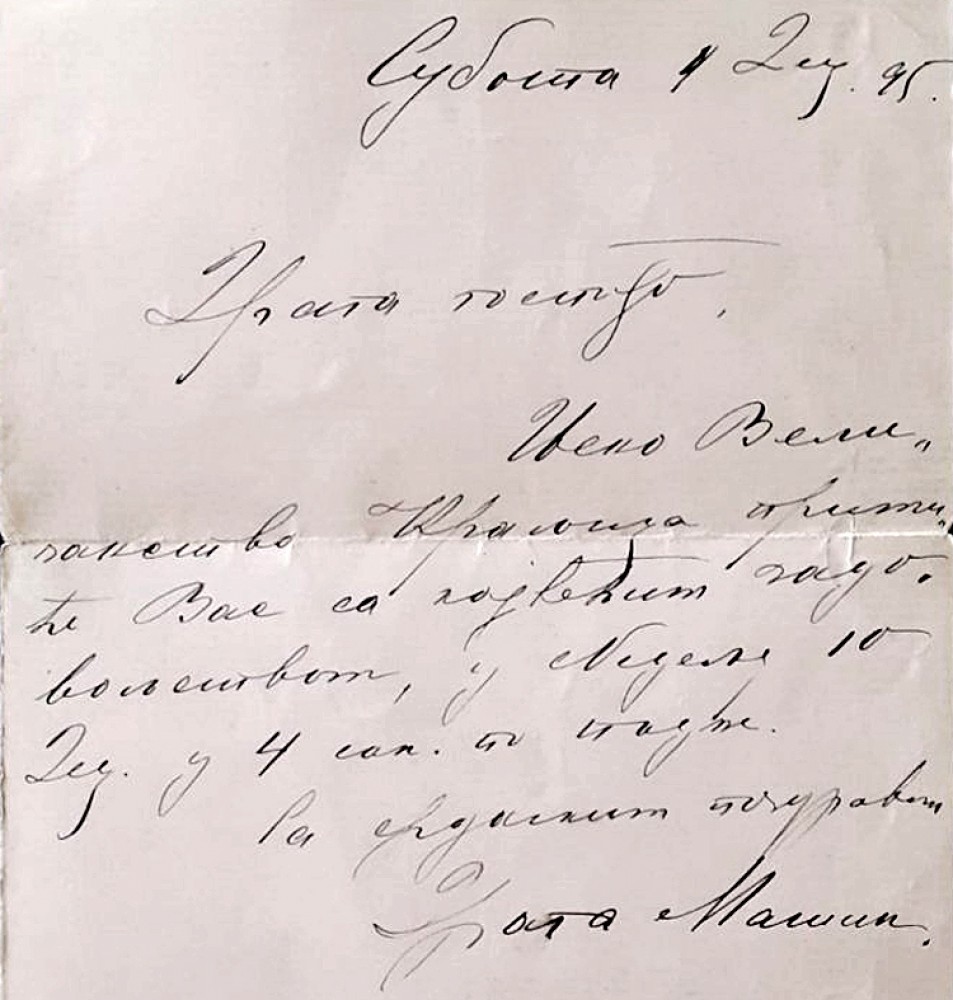 Субота 9 Дец. 95.
Драга госпођо,
Њено Вели„
чанство Краљица прими„
ће Вас са највећим задо„
вољством, у Недељу 10
Дец. у 4 сах. по подне.
Са срдачним поздравом
Драга Машин.